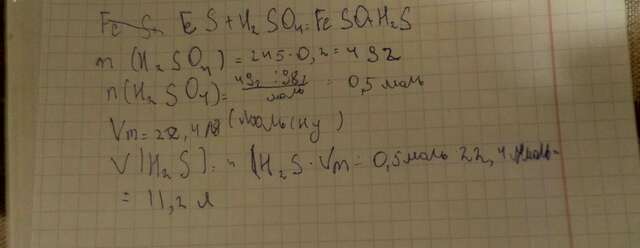 Fe S + H₂ SO₄ = Fe SO₄ H₂S
m (H₂SO₄) = 245·0,2 = 49г
n(H₂SO₄) = 49г : 98г/моль = 0,5 моль
Vm = 22,4 л (моль (ну)
V(H₂S) = n (H₂S · Vm = 0,5 моль 22,4 л/моль =
= 11,2 л